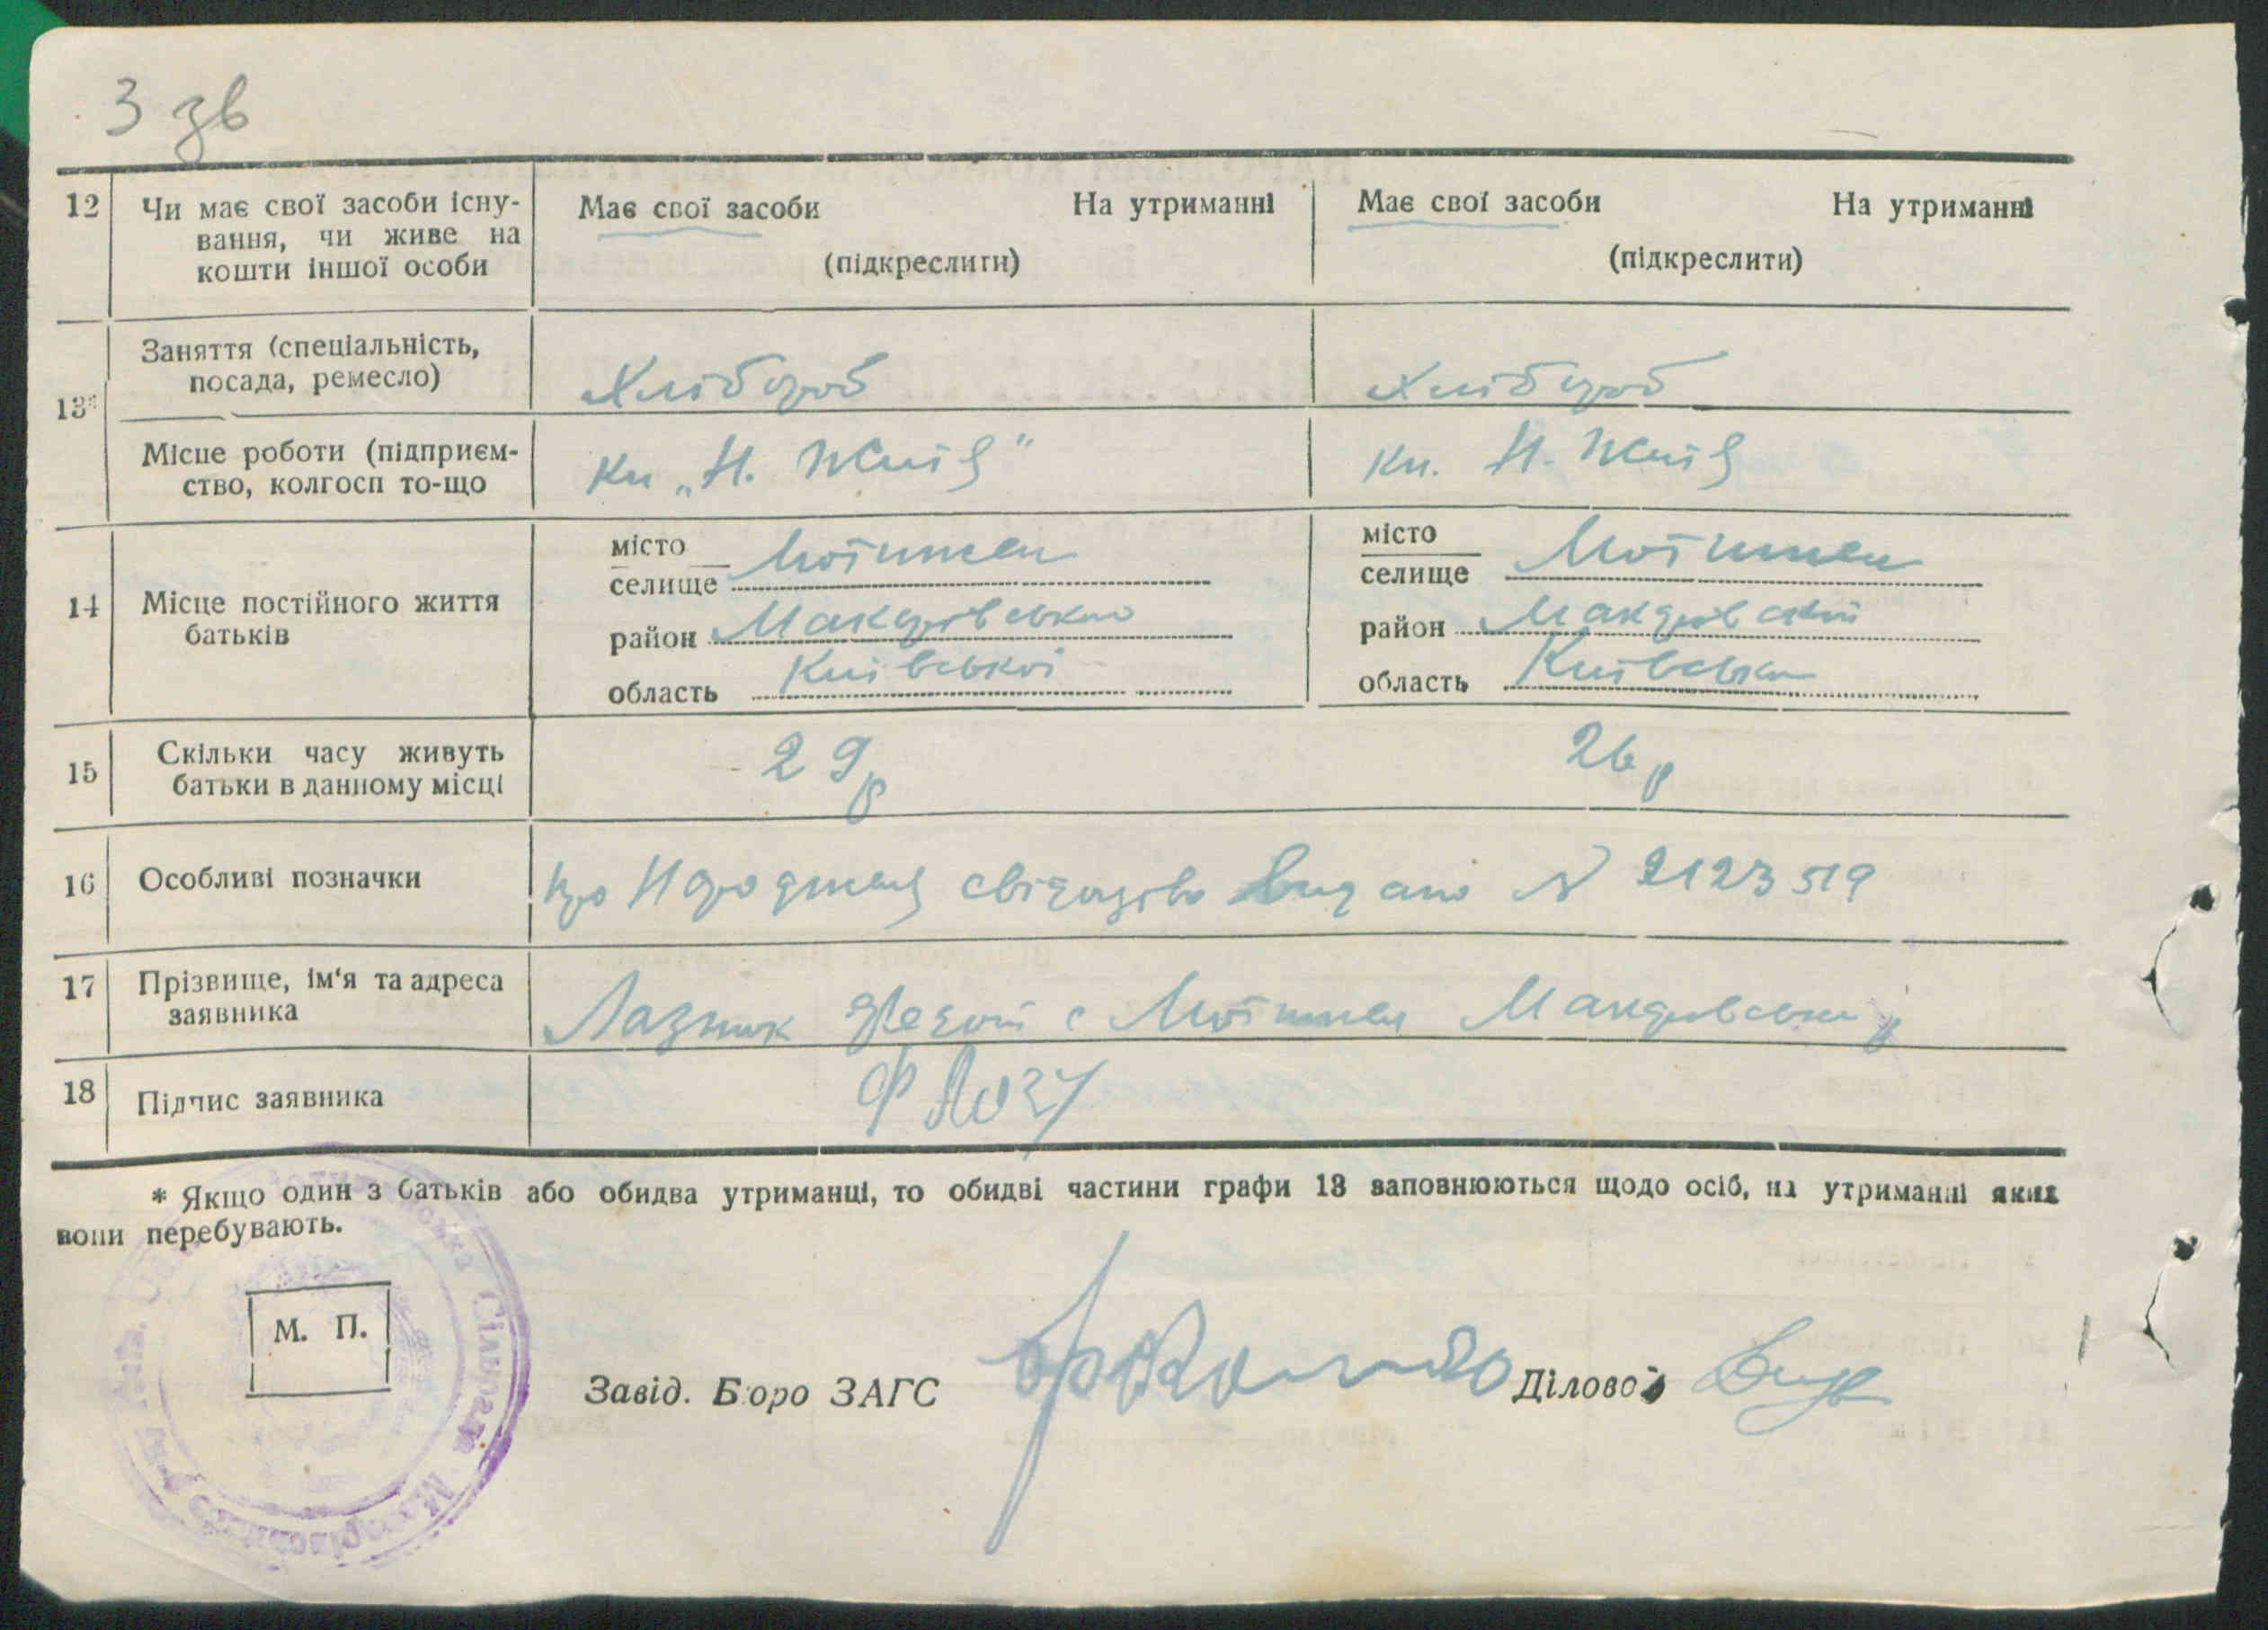 3 зв
12 Чи має свої засоби існу- Має свої засоби На утриманні Має свої засоби На утриманні
вання, чи живе на
кошти іншої особи (підкреслити) (підкреслити)
Заняття (спеціальність,
посада, ремесло) Хлібороб Хлібороб
13*
Місце роботи (підприєм-
ство, колгосп то-що Кл „Н. Життя" Кл. Н. Життя
14 Місце постійного життя
батьків
місто
селище Мотижен
район Макарівсько
область Київської
місто
селище Мотижен
район Макарівський
область Київська
15 Скільки часу живуть
батьки в данному місці 29 р 26 р
16 Особливі позначки Про Народження свідоцтво видано N 2123519
17 Прізвище, ім'я та адреса
заявника Лазник Федот с Мотижен Макарівськ р
18 Підпис заявника Ф Лоз
* Якщо один з батьків або обидва утриманці, то обидві частини графи 13 заповнюються щодо осіб, на утриманні яких
вони перебувають.
М. П.
Завід. Бюро ЗАГС Діловод
Сільрада Макарівського